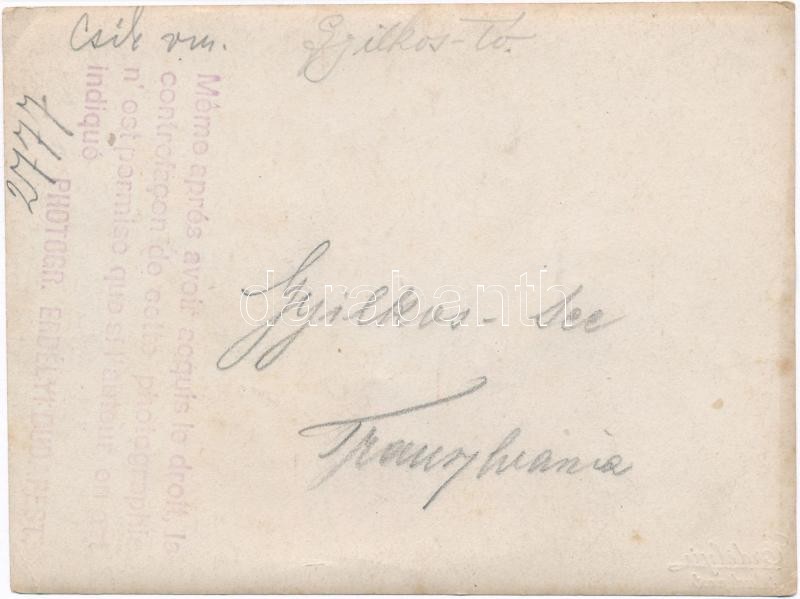 Csik vm.
Gyilkos-tó.
2777
Même après avoir acquis le droit, la
contrefaçon de cette photographie
n'est permise que si l'auteur en est
indiqué
PHOTOGR. ERDÉLYI BUDAPEST.
Gyilkos-see
Transylvania
darabanth
Erdélyi